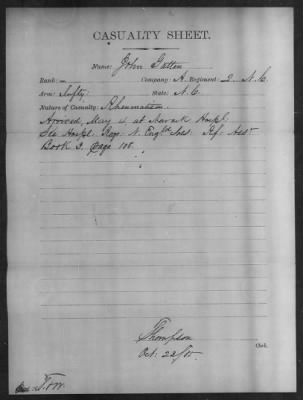 CASUALTY SHEET.
Name: John Gatten
Rank: – Company: A. Regiment 2. N.C.
Arm: Infty: State: N.C.
Nature of Casualty: Rheumatism
Arrived, May 4 at Hospl:
See Hospl. N. Ref: Asst
Book 3. Page 108.
Thompson
Oct. 22/85. Clerk.